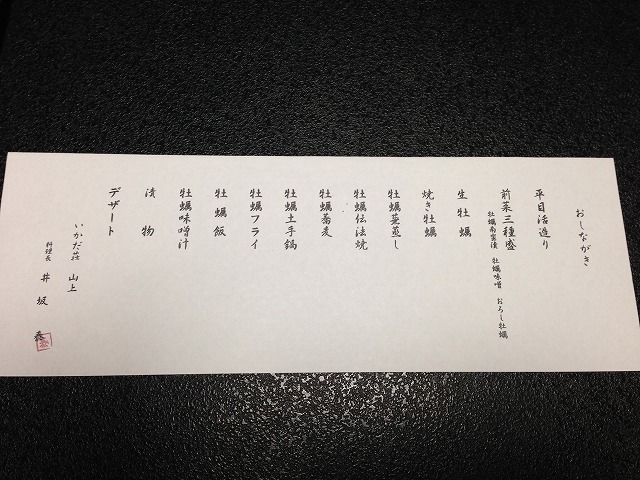 おしながき
平目活造り
前菜三種盛
牡蠣南蛮漬 牡蠣味噌 おろし牡蠣
生牡蠣
焼き牡蠣
牡蠣蕪蒸し
牡蠣伝法焼
牡蠣蕎麦
牡蠣土手鍋
牡蠣フライ
牡蠣飯
牡蠣味噌汁
漬物
デザート
いかだ荘 山上
料理長 井坂